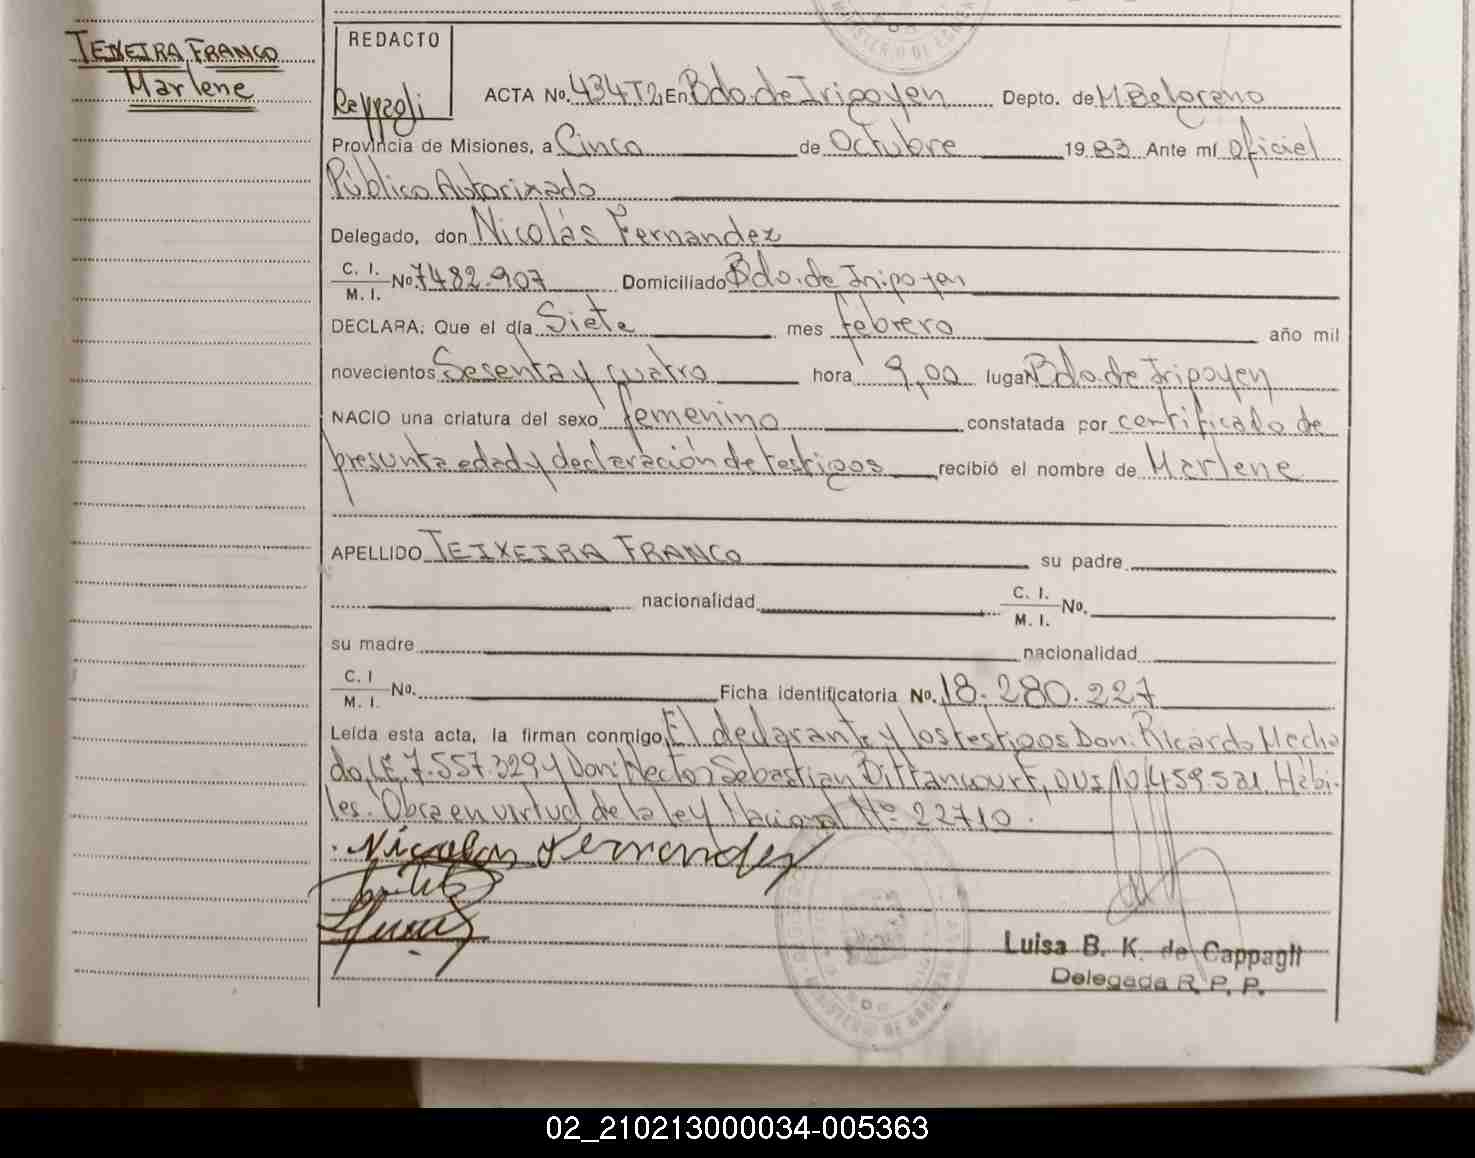 TEIXEIRA FRANCO
Marlene
REDACTO
ACTA No. 434T2, En Bdo. de Irigoyen Depto. de M. Belgrano
Provincia de Misiones, a Cinco de Octubre 19 83 Ante mí Oficial
Público Autorizado
Delegado, don Nicolás Fernandez
C. I.
M. I. No. 7482.907 Domiciliado Bdo. de Irigoyen
DECLARA: Que el día Siete mes febrero año mil
novecientos Sesenta y cuatro hora 9,00 lugar Bdo. de Irigoyen
NACIO una criatura del sexo femenino constatada por certificado de
presunta edad y declaración de testigos recibió el nombre de Marlene
APELLIDO TEIXEIRA FRANCO su padre
nacionalidad C. I.
M. I. No.
su madre nacionalidad
C. I
M. I. No. Ficha identificatoria No. 18.280.227
Leída esta acta, la firman conmigo, El declarante y los testigos Don: Ricardo Macha
do, L.E. 7.557.329 y Don: Hector Sebastian Bittancourt, DNI 10.459.521. Hábi-
les. Obra en virtud de la ley Nacional Nº 22710.
Nicolas Fernandez
Luisa B. K. de Cappagli
Delegada R. P. P.
02_210213000034-005363